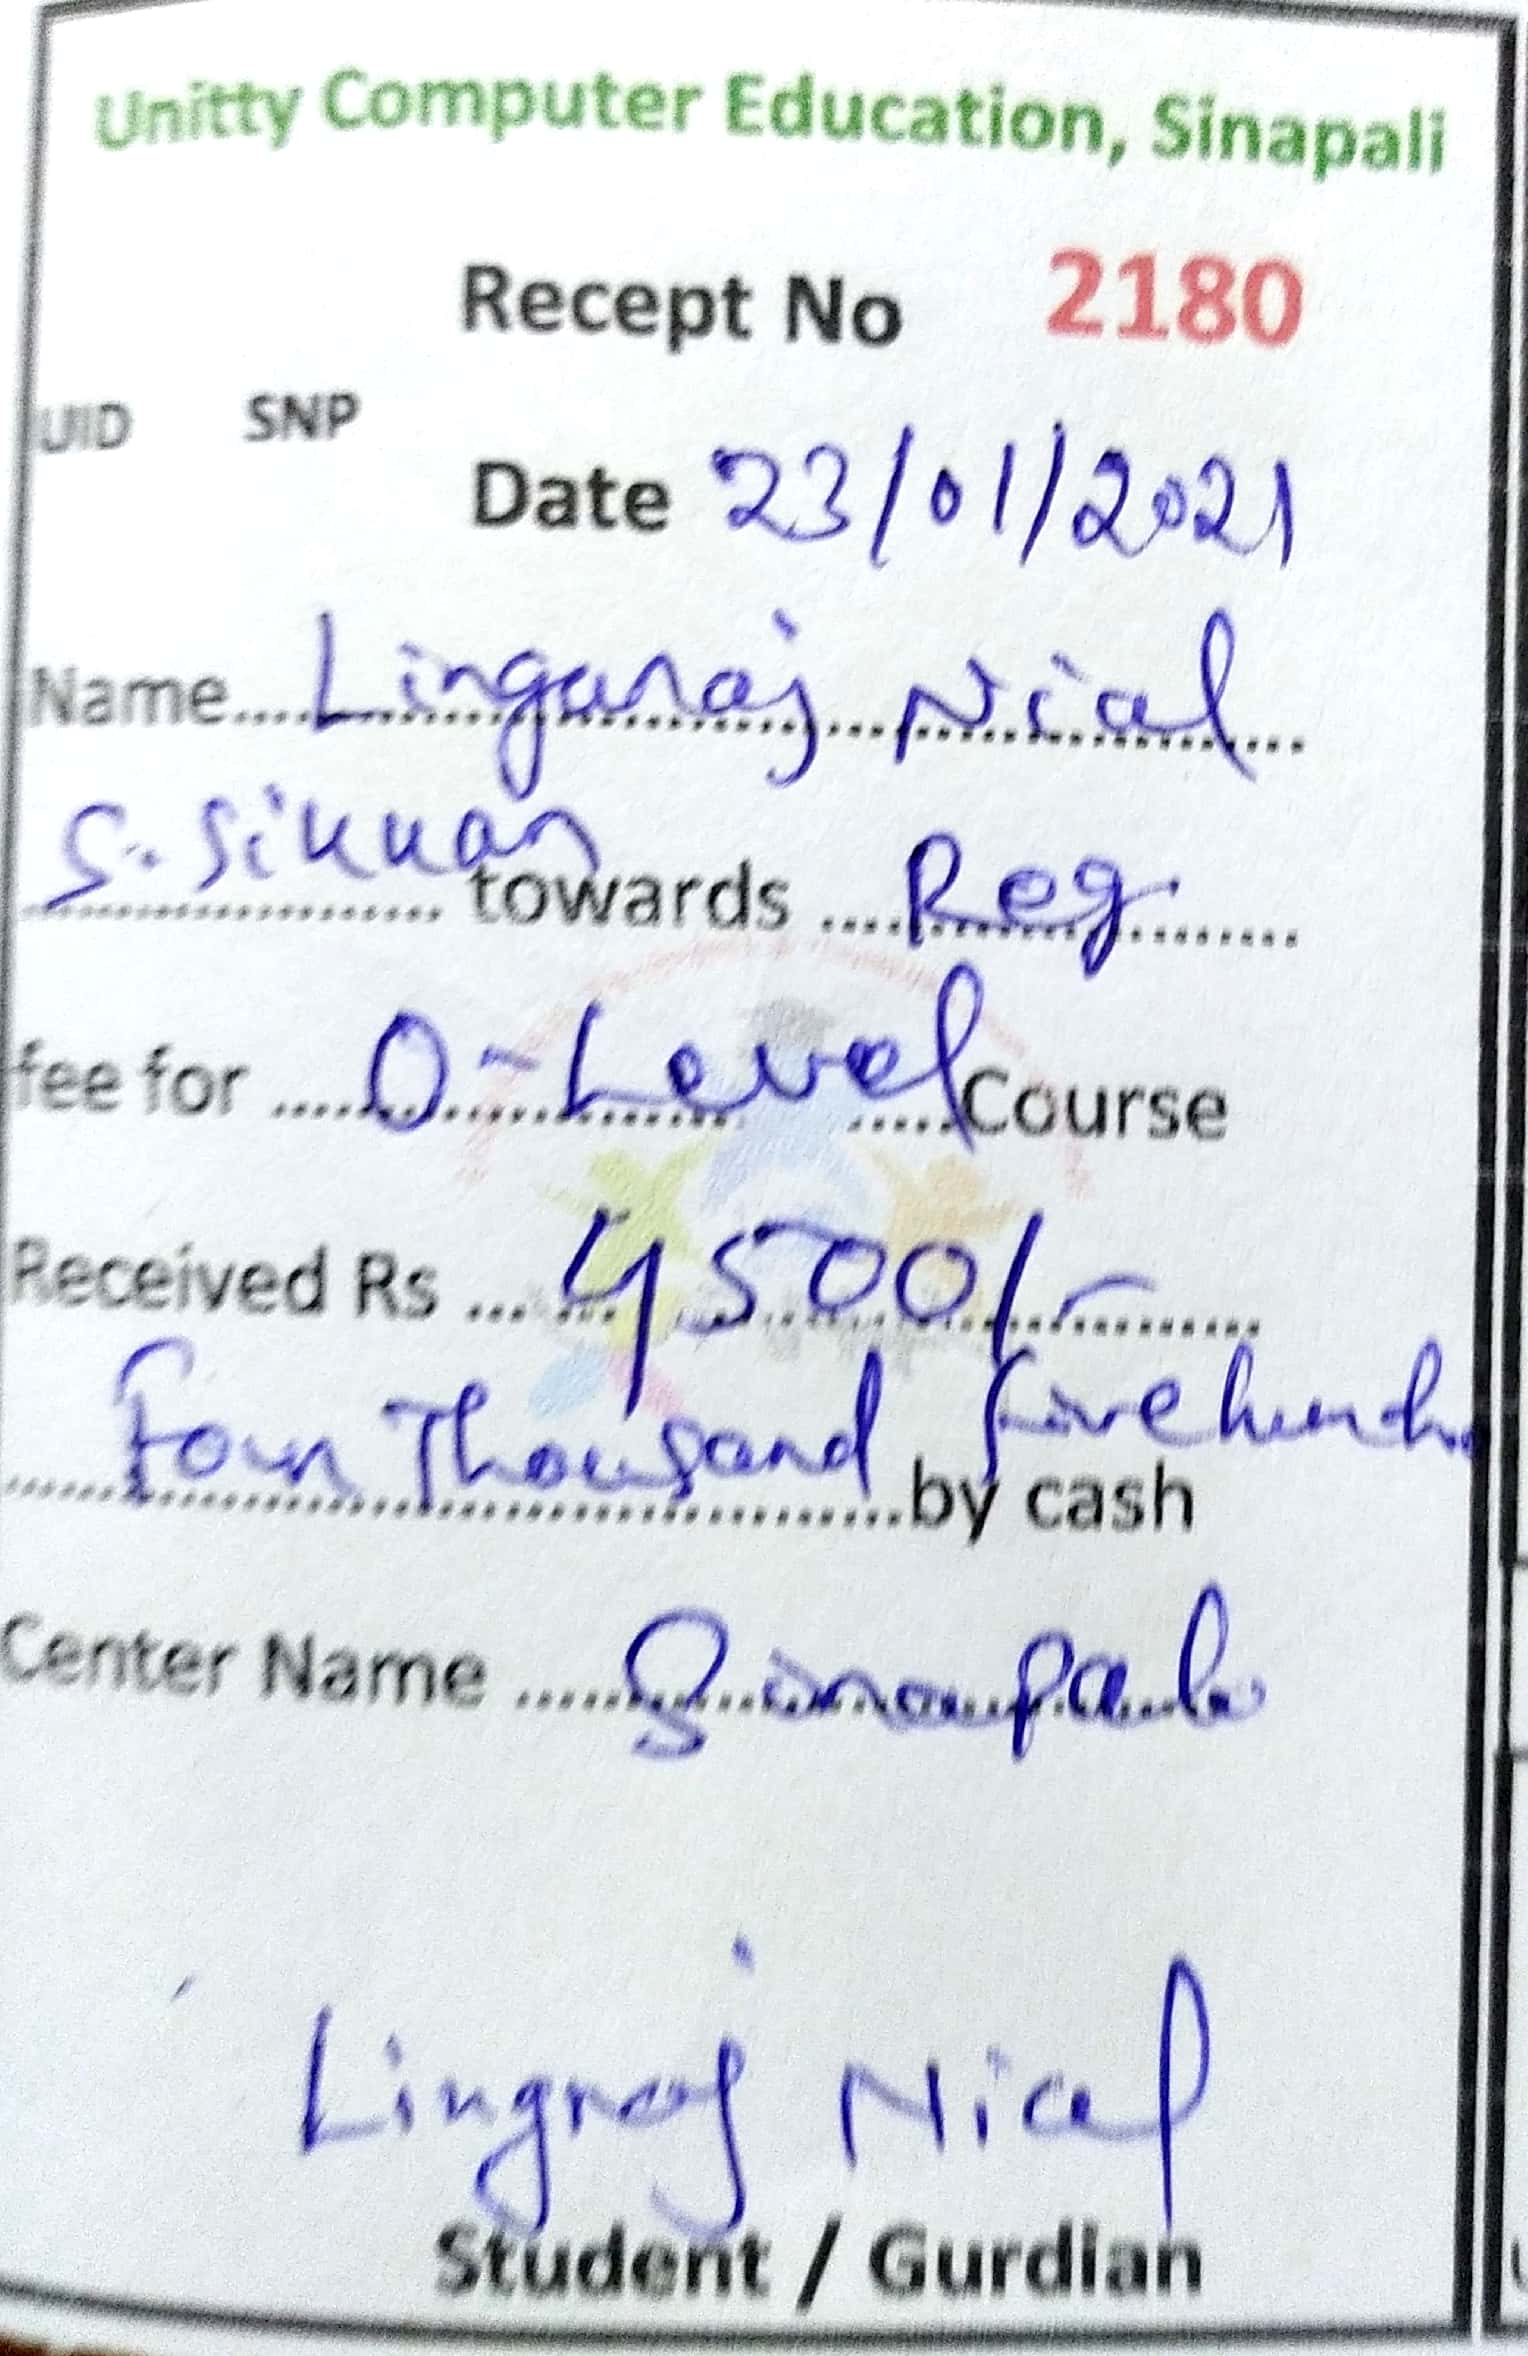 Unitty Computer Education, Sinapali
Recept No 2180
UID SNP
Date 23/01/2021
Name.... Lingaraj Nial
S. Sikuan towards .... Reg
fee for .... O-Level Course
Received Rs ... 4500/-
Four Thousand five hundr by cash
Center Name ..... Sinapali
Lingraj Nial
Student / Gurdian